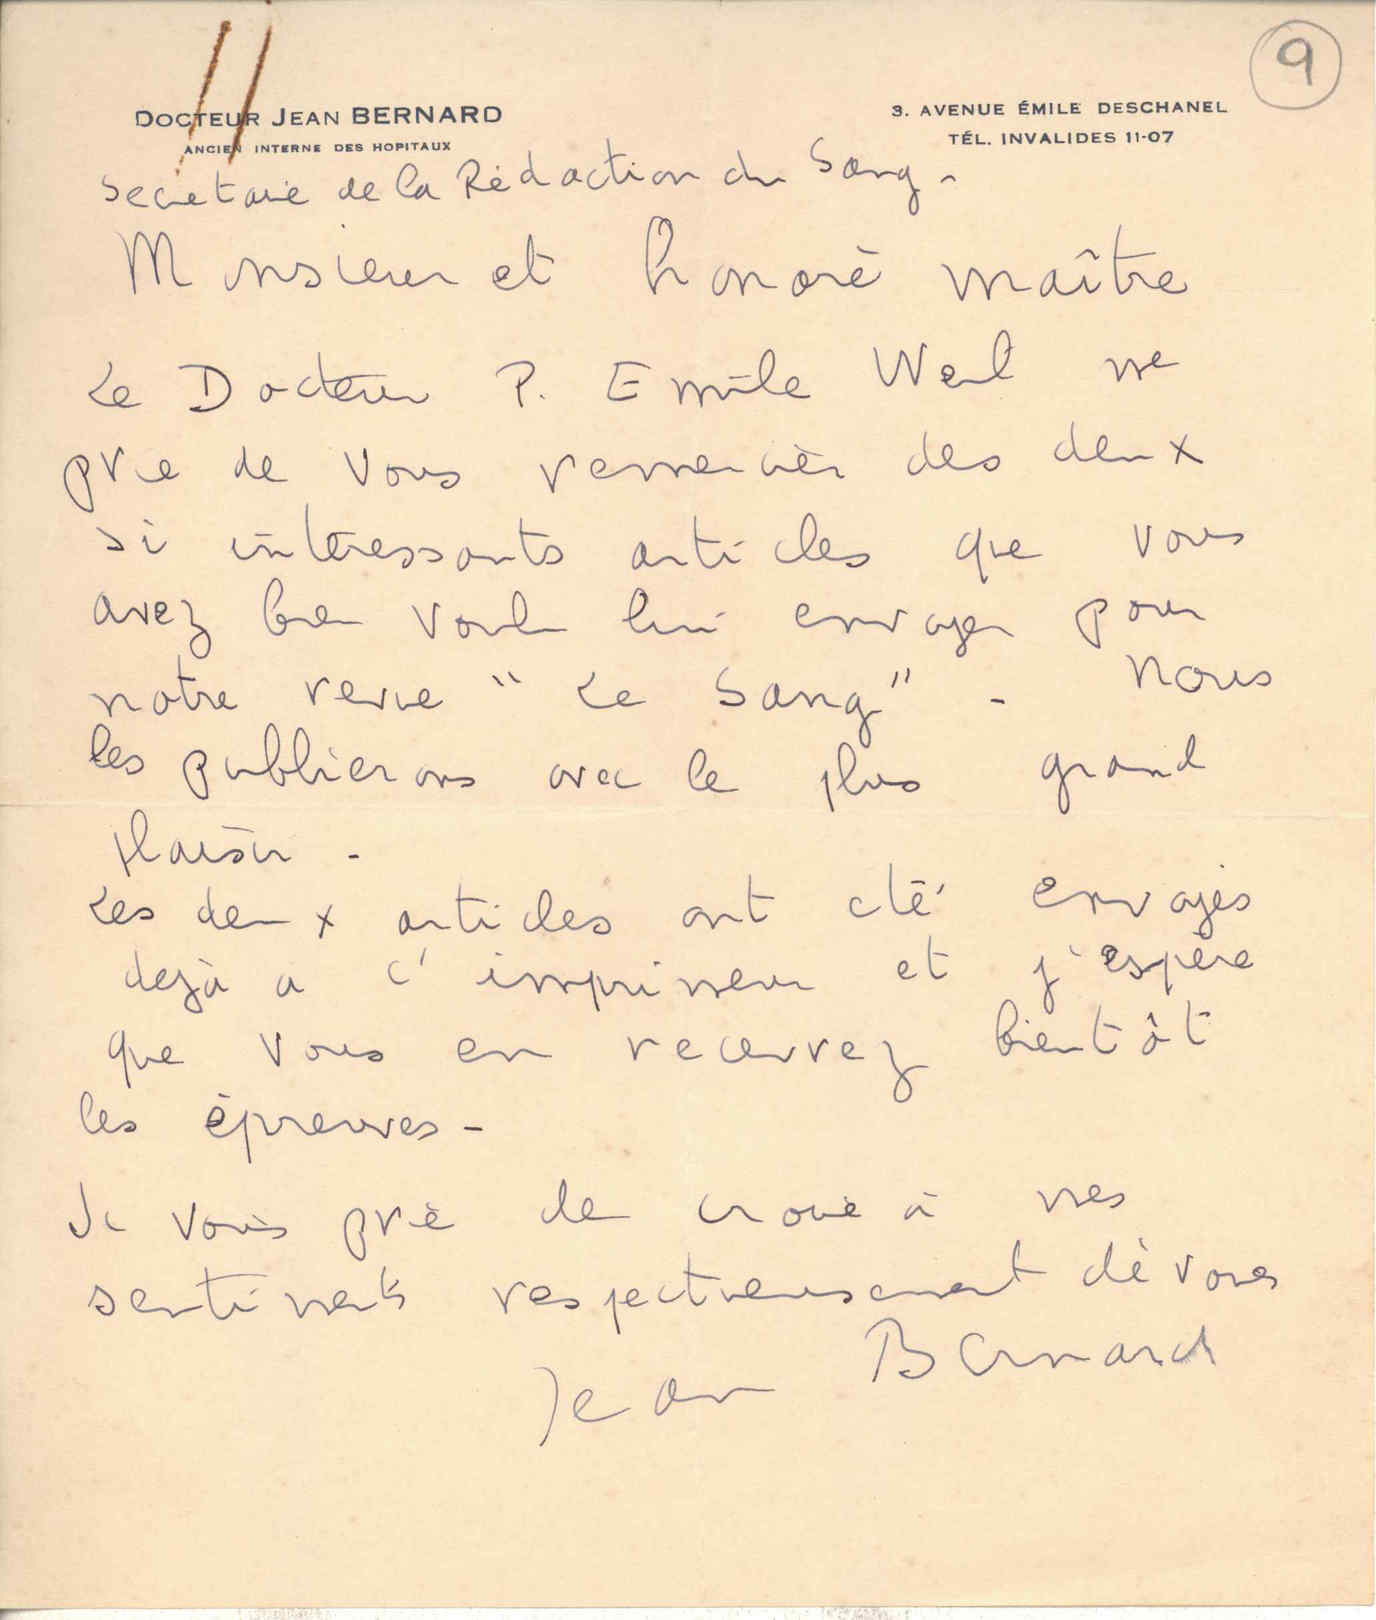 9
DOCTEUR JEAN BERNARD
ANCIEN INTERNE DES HOPITAUX
3. AVENUE ÉMILE DESCHANEL
TÉL. INVALIDES 11-07
Secrétaire de la Rédaction du Sang -
Monsieur et honoré maître
Le Docteur P. Emile Weil me
prie de vous remercier des deux
si intéressants articles que vous
avez bien voulu lui envoyer pour
notre revue " Le Sang " - Nous
les publierons avec le plus grand
plaisir -
Les deux articles ont été envoyés
dejà a l'imprimeur et j'espère
que vous en recevrez bientôt
les épreuves -
Je vous prie de croire à mes
sentiments respectueusement dévoués
Jean Bernard